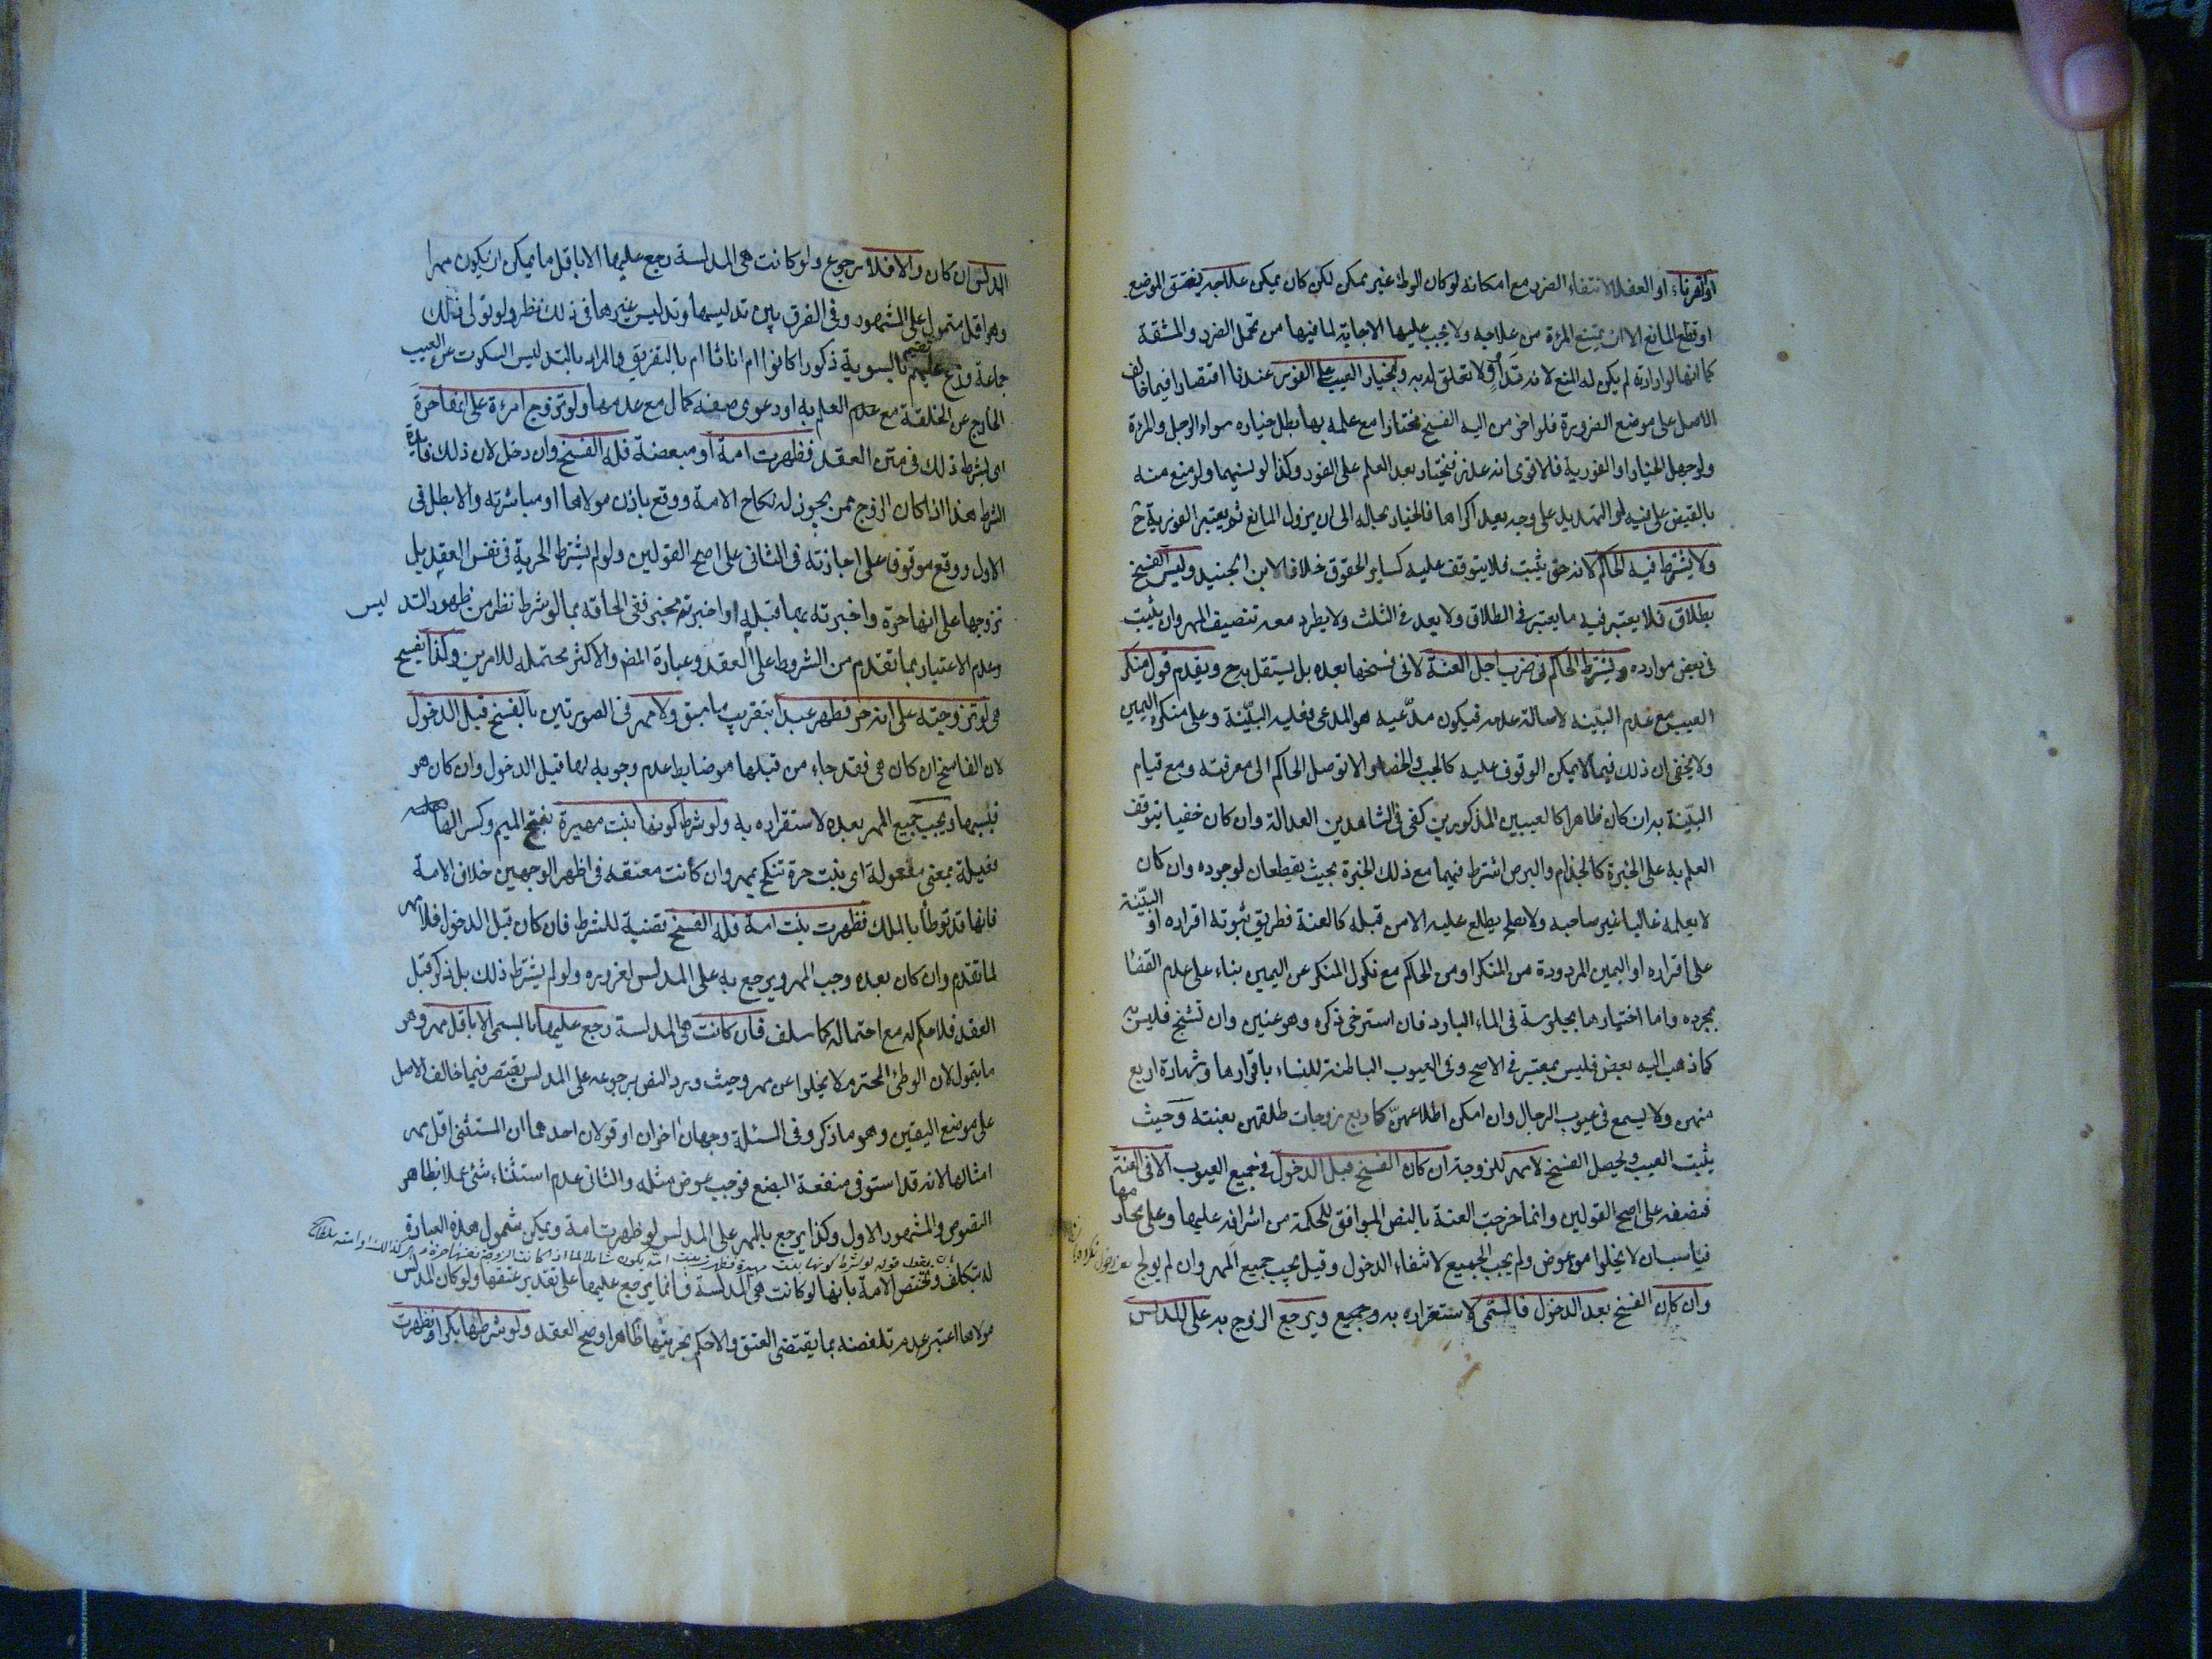 او القرناء او العفلاء لانتفاء الضرر مع امكانه لو كان الوطئ غير ممكن لكن كان يمكن علاجه بفتق الموضع
او قطع المانع الا ان يمتنع المرءة من علاجه ولا يجب عليها الاجابة لما فيها من تحمل الضرر والمشقة
كما انها لو ارادته لم يكن له المنع لانه تداو لا تعلق له به وخيار العيب على الفور عندنا اقتصارا فيما خالف
الاصل على موضع الضرورة فلو اخر من اليه الفسخ مختارا مع علمه بها بطل خياره سواء الرجل والمرءة
ولو جهل الخيار او الفورية فالاقوى انه عذر فيختار بعد العلم على الفور وكذا لو نسيهما ولو منع منه
بالقبض على فيه او التهديد على وجه يعد اكراها فالخيار بحاله الى ان يزول المانع ثم يعتبر الفورية ح
ولا يشترط فيه الحاكم لانه حق يثبت فلا يتوقف عليه كساير الحقوق خلافا لابن الجنيد وليس الفسخ
بطلاق فلا يعتبر فيه ما يعتبر في الطلاق ولا يعد في الثلث ولا يطرد معه تنصيف المهر وان يثبت
في بعض موارده ويشترط الحاكم في ضرب اجل العنة لا في فسخها بعده بل يستقل به ح ويقدم قول منكر
العيب مع عدم البينة لاصالة عدمه فيكون مدعيه هو المدعى فعليه البينة وعلى منكره اليمين
ولا يخفى ان ذلك فيما لا يمكن الوقوف عليه كالجب والخصاء والا توصل الحاكم الى معرفته ومع قيام
البينة به ان كان ظاهرا كالعيبين المذكورين كفى في الشاهدين العدالة وان كان خفيا يتوقف
العلم به على الخبرة كالجذام والبرص اشترط فيهما مع ذلك الخبرة بحيث يقطعان لوجوده وان كان
لا يعلمه غالبا غير صاحبه ولا يطلع عليه الا من قبله كالعنة فطريق ثبوته اقراره او البينة
على اقراره او اليمين المردودة من المنكر او من الحاكم مع نكول المنكر عن اليمين بناء على عدم القضاء
بمجرده واما اختبارها بجلوسه في الماء البارد فان استرخى ذكره وهو عنين وان تشنج فليس به
كما ذهب اليه بعض فليس بمعتبر في الاصح وفى العيوب الباطنة للنساء باقرارها وشهادة اربع
منهن ولا يسمع في عيوب الرجال وان امكن اطلاعهن كاربع زوجات طلقهن بعنته وحيث
يثبت العيب ويحصل الفسخ لا مهر للزوجة ان كان الفسخ قبل الدخول في جميع العيوب الا في العنة
فنصفه على اصح القولين وانما خرجت العنة بالنص الموافق للحكمة من اشرافه عليها وعلى محارمها
فناسب ان لا يخلوا من عوض ولم يجب الجميع لانتفاء الدخول وقيل يجب جميع المهر وان لم يولج
وان كان الفسخ بعد الدخول فالمسمى لاستقراره به وجميع ويرجع الزوج به على المدلس
المدلس ان كان والا فلا رجوع ولو كانت هى المدلسة رجع عليها الا باقل ما يمكن ان يكون مهرا
وهو اقل متمول على المشهود وفى الفرق بين تدليسها وتدليس غيرها في ذلك نظر ولو تولى ذلك
جماعة وزع عليهم بالسوية ذكورا كانوا ام اناثا ام بالتفريق والمراد بالتدليس السكوت عن العيب
الخارج عن الخلقة مع علم العلم به او دعوى صفة كمال مع عدمها ولو تزوج امرءة على انها حرة
اى بشرط ذلك في متن العقد فظهرت امة او مبعضة فله الفسخ وان دخل لان ذلك فايدة
الشرط هذا اذا كان الزوج ممن يجوز له نكاح الامة ووقع باذن مولاها او مباشرته والا بطل في
الاول ووقع موقوفا على اجازته في الثانى على اصح القولين ولو لم يشترط الحرية في نفس العقد بل
تزوجها على انها حرة واخبرته بها قبله او اخبره مخبر ففى الحاقه بما لو شرط نظر من ظهور التدليس
وعدم الاعتبار بما تقدم من الشروط على العقد وعبارة المص والاكثر محتملة للامرين وكذا تفسخ
هى لو تزوجته على انه حر فظهر عبدا بتقريب ما سبق ولا مهر في الصورتين بالفسخ قبل الدخول
لان الفاسخ ان كان هى فقد جاء من قبلها هو ضابط عدم وجوبه لها قبل الدخول وان كان هو
فبسببها ويجب جميع المهر بعده لاستقراره به ولو شرط كونها بنت مهيرة بفتح الميم وكسر الهاء
فعيلة بمعنى مفعولة اى بنت حرة تنكح بمهر وان كانت معتقة في اظهر الوجهين خلاف الامة
فانها قد توطأ بالملك فظهرت بنت امة فله الفسخ قضية للشرط فان كان قبل الدخول فلا مهر
لما تقدم وان كان بعده وجب المهر ويرجع به على المدلس لغروره ولو لم يشترط ذلك بل ذكر قبل
العقد فلا حكم له مع احتماله كما سلف فان كانت هى المدلسة رجع عليها بالمسمى الا باقل مهر وهو
ما يتمول لان الوطئ المحترم لا يخلوا عن مهر وحيث ورد النص برجوعه على المدلس يقتصر فيما خالف الاصل
على موضع اليقين وهو ما ذكر وفى المسئلة وجهان اخران او قولان احدهما ان المستثنى اقل مهر
امثالها لانه قد استوفى منفعة البضع فوجب عوض مثله والثانى عدم استثناء شئ عملا بظاهر
النصوص والمشهور الاول وكذا يرجع بالمهر على المدلس لو ظهرت امة ويمكن شمول هذه العبارة
له بتكلف وتختص الامة بانها لو كانت هى المدلسة فانما يرجع عليها على تقدير عتقها ولو كان المدلس
مولاها اعتبر عدم تلفظه بما يقتضى العتق والا حكم بحريتها ظاهرا وصح العقد ولو شرطها بكرا فظهرت